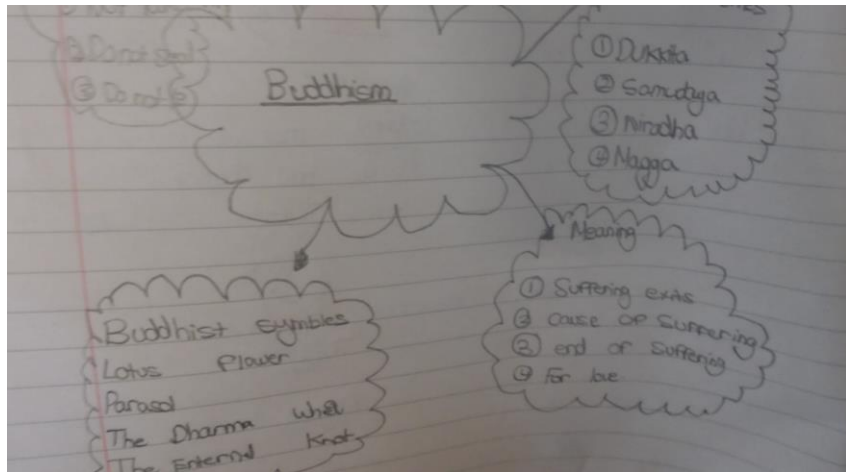 ② Do not steal
③ Do not
Buddhism
① Dukkita
② Samudaya
③ Nirodha
④ Magga
Meaning
① Suffering exits
② cause of suffering
③ end of suffering
④ For love
Buddhist symbles
Lotus flower
Parasol
The Dharma whel
The Enternal Knot